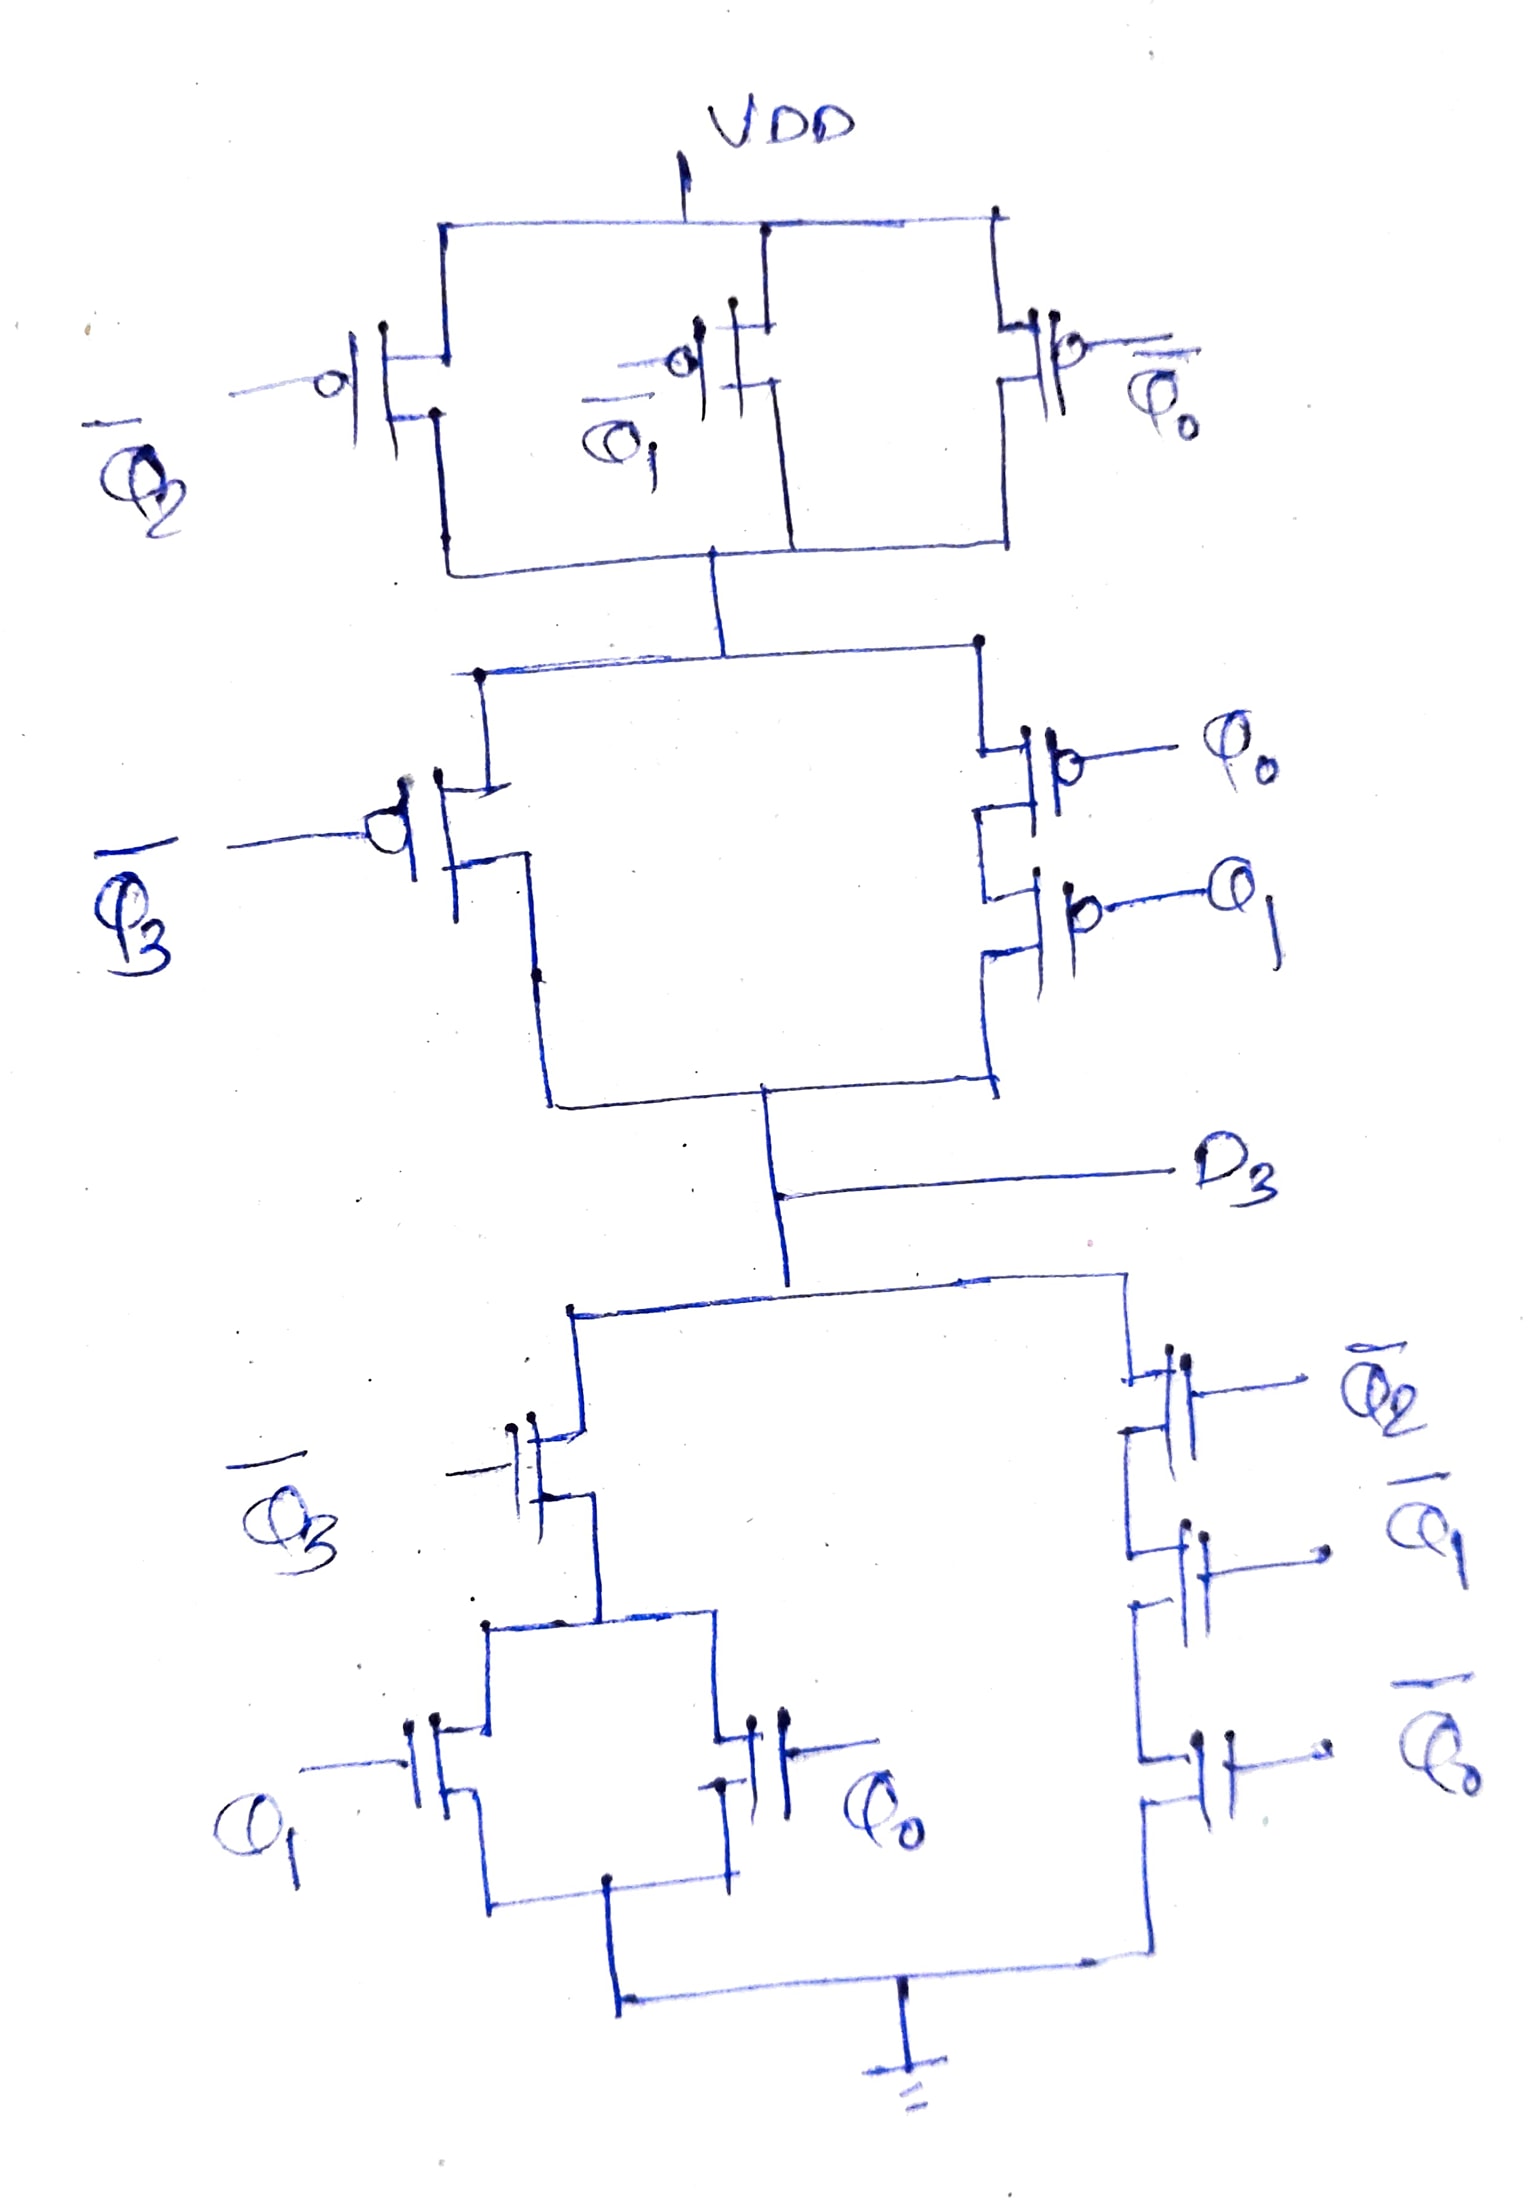 VDD
Q̅2
Q̅1
Q̅0
Q0
Q̅3
Q1
D3
Q̅2
Q̅3
Q̅1
Q1
Q0
Q̅0